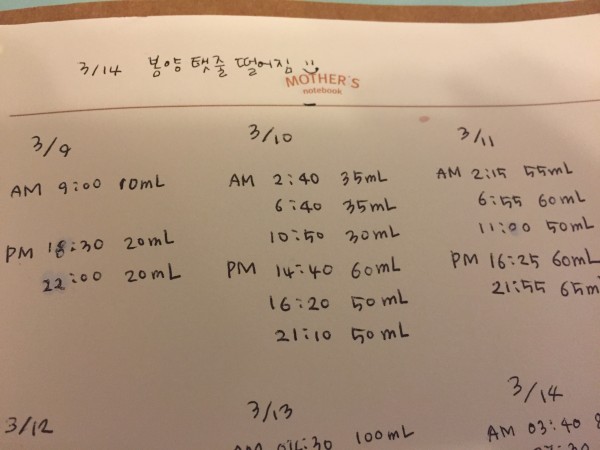 3/14 봄양 탯줄 떨어짐
MOTHER'S
notebook
3/9
AM 9:00 10mL
PM 18:30 20mL
22:00 20mL
3/10
AM 2:40 35mL
6:40 35mL
10:50 30mL
PM 14:40 60mL
16:20 50mL
21:10 50mL
3/11
AM 2:15 55mL
6:55 60mL
11:00 50mL
PM 16:25 60mL
21:55 65m
3/12
3/13
100mL
3/14
AM 03:40